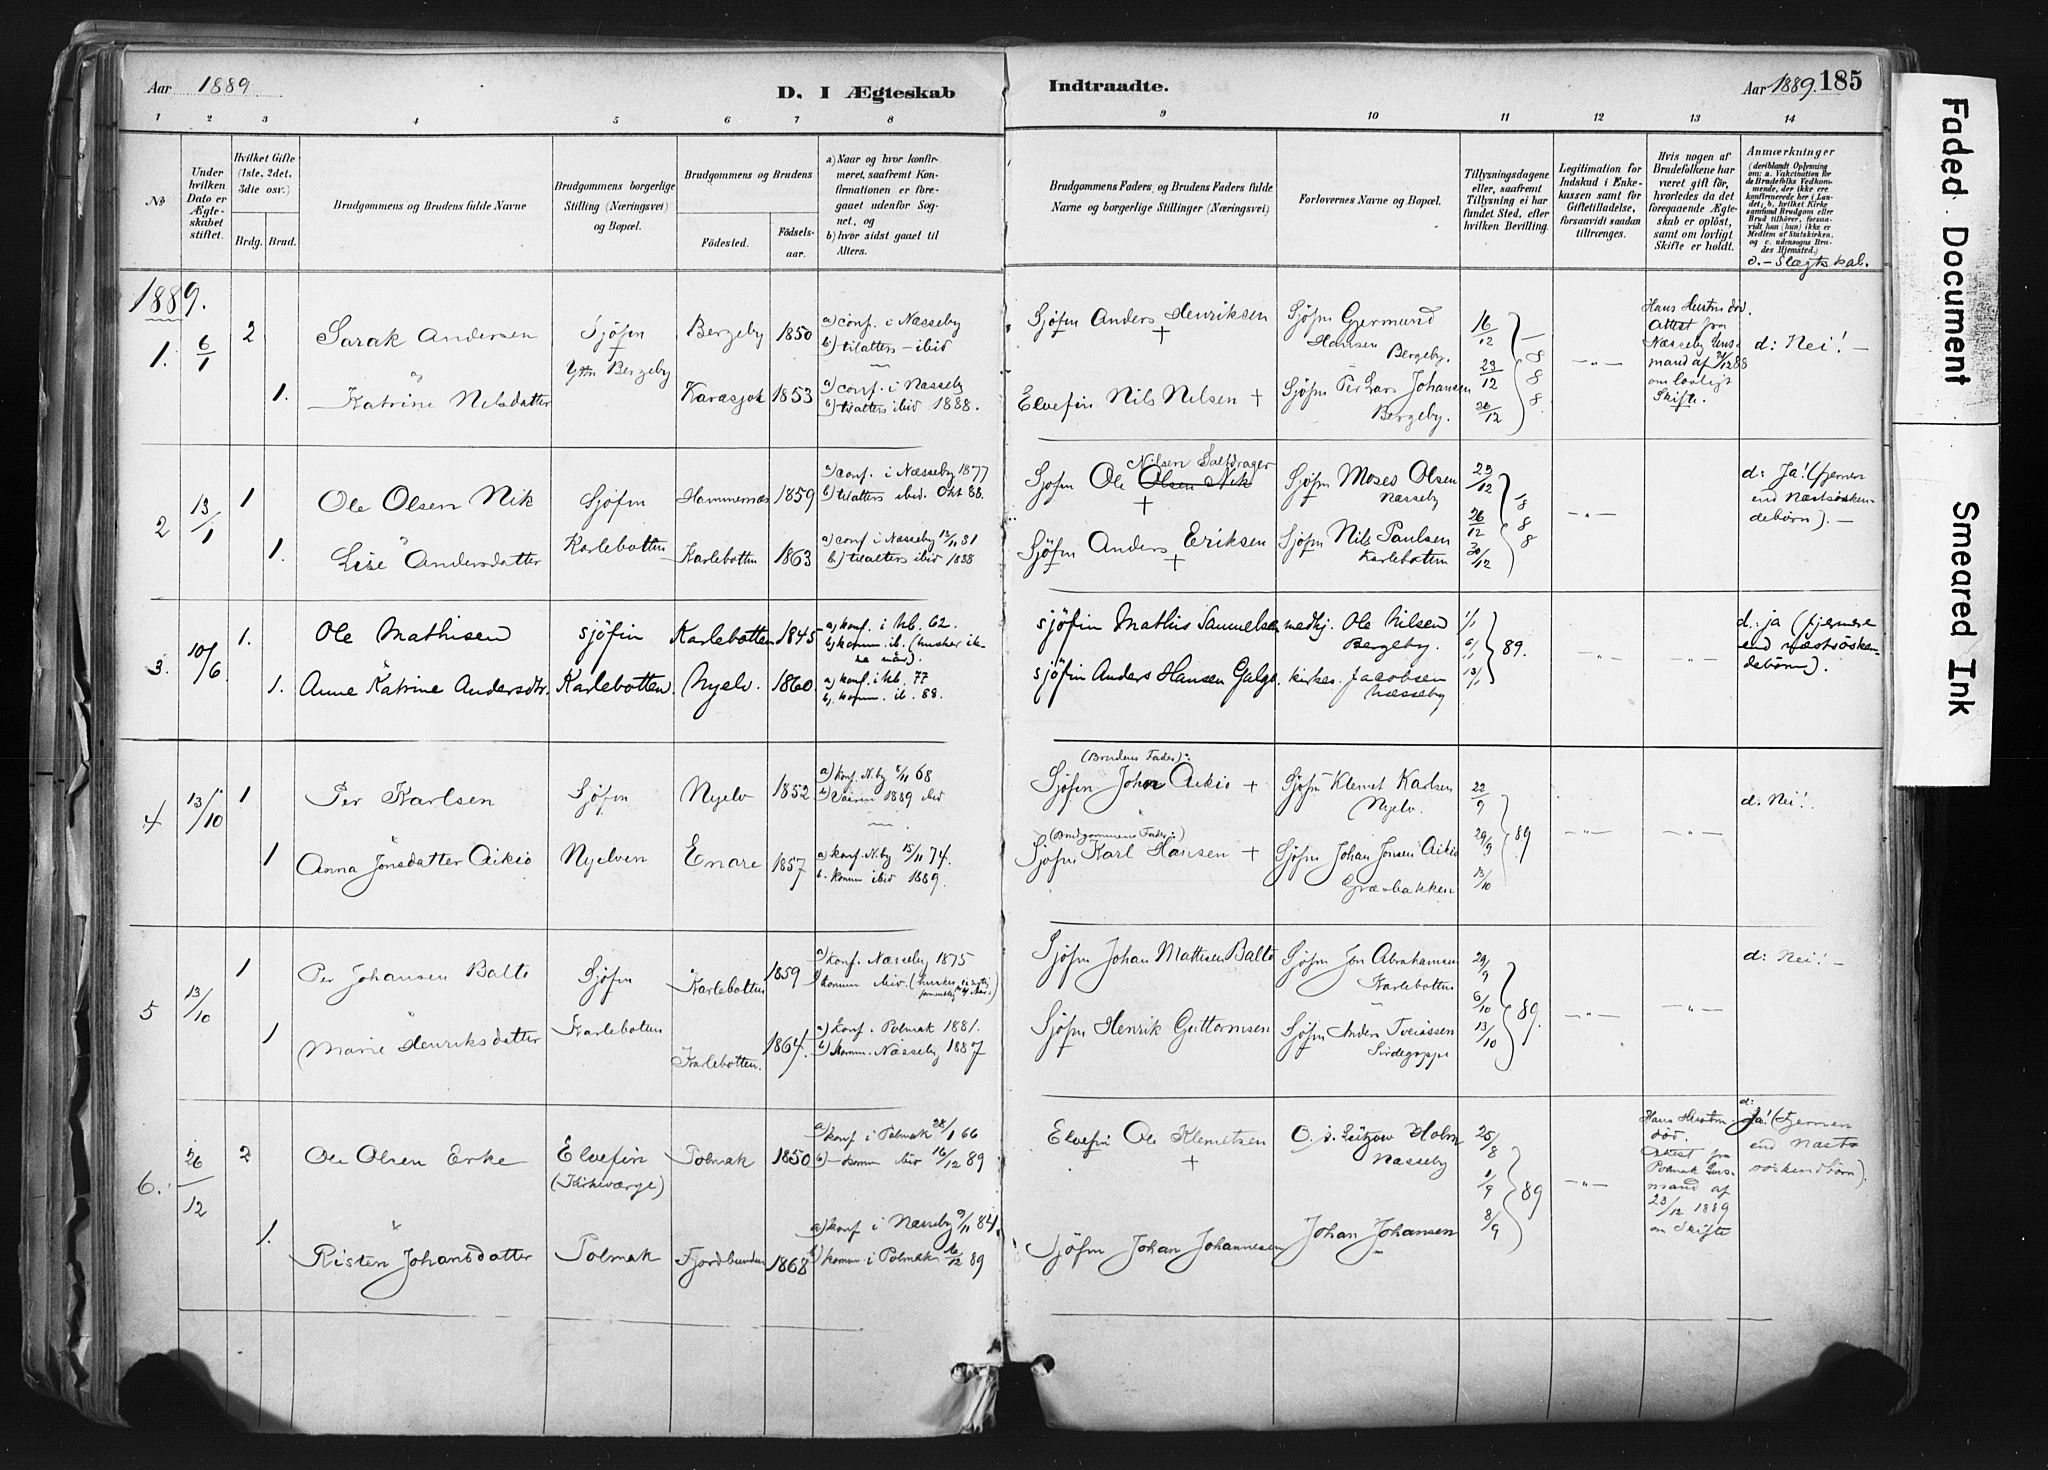 Aar 1889.
D. I Ægteskab
Indtraadte.
Aar 1889. 185
1 2 3 4 5 6 7 8 9 10 11 12 13 14
No
Under hvilken Dato er Ægteskabet stiftet.
Hvilket Gifte (1ste, 2det, 3die osv.)
Brdg. Brud.
Brudgommens og Brudens fulde Navne
Brudgommens borgerlige Stilling (Næringsvei) og Bopæl.
Brudgommens og Brudens
Födested.
Födselsaar.
a) Naar og hvor konfirmeret, saafremt Konfirmationen er foregaaet udenfor Sognet, og
b) hvor sidst gaaet til Alters.
Brudgommens Faders og Brudens Faders fulde Navne og borgerlige Stillinger (Næringsvei)
Forlovernes Navne og Bopæl.
Tillysningsdagene eller, saafremt Tillysning ei har fundet Sted, efter hvilken Bevilling.
Legitimation for Indskud i Enkekassen samt for Giftetilladelse, forsaavidt saadan tiltrænges.
Hvis nogen af Brudefolkene har været gift før, hvorledes da det foregaaende Ægteskab er opløst, samt om lovligt Skifte er holdt.
Anmærkninger
(deriblandt Oplysning om: a. Vakcination for de Brudefolks Vedkommende, der ikke ere konfirmerede her i Landet; b. hvilken Kirke samfund Brudgom eller Brud tilhörer, forsaavidt han (hun) ikke er Medlem af Statskirken, og c. udensogns Brudes Hjemsted.)
d. - Slægtskab.
1889.
1. 6/1 2 Sarak Andersen Sjöfin Bergeby 1850 a) conf. i Næsseby
b) tilalters - ibid
Sjöfin Anders Henriksen + Sjöfin Gjermund Hansen Bergeby. 16/12 23/12 26/12 88 8 8 - " -
Hans Hustru död. Attest fra Næsseby Lensmand af /12 88 om lovligt Skifte.
d: Nei! -
1. Katrine Nilsdatter Ytre Bergeby Karasjok 1853 a) conf. i Næsseby
b) tilalters ibid 1888.
Elvefin Nils Nilsen + Sjöfin Per Lars Johansen Bergeby.
2 13/1 1 Ole Olsen Nik Sjöfin Hammernæs 1859 a) conf. i Næsseby 1877
b) tilalters ibid. Okt 88.
Sjöfin Ole Olsen Nik Nilsen Saltdrager + Sjöfin Moses Olsen Næsseby 23/12 26/12 30/12 88 8 - " -
d: Ja! (fjernere end Næstsöskendebörn). -
1. Lise Andersdatter Karlebotten Karlebotten 1863 a) conf i Næsseby 13/11 81
b) tilalters ibid 1888
Sjöfin Anders Eriksen + Sjöfin Nils Paulsen Karlebotten
3. 10/6 1. Ole Mathisen sjöfin Karlebotten 1845 a) konf. i Nb. 62.
b) komm. ib. (husker ikke når).
sjöfin Mathis Sammelsen medhj. Ole Nilsen Bergeby. 1/1 6/1 13/1 89. - " - - " -
d: ja (fjernere end næstsöskendebörn).
1. Anne Katrine Andersdtr. Karlebotten Nyelv. 1860 a) konf. i Nb. 77
b) komm. ib. 88.
sjöfin Anders Hansen Galgo. kirkes. Jacobsen Næsseby
4 13/10 1 Per Karlsen Sjöfin Nyelv 1852 a) konf. N.by /11 68
b) Vaaren 1889 ibid
(Brudens Fader):
Sjöfin John Aikio + Sjöfin Klemet Karlsen Nyelv. 22/9 29/9 13/10 89 - " - - " - d: Nei!
1 Anna Jonsdatter Aikio Nyelven Enare 1857 a) konf. N.by 15/11 74.
b. komm ibid 1889.
(Brudgommens Fader:)
Sjöfin Karl Hansen + Sjöfin Johan Jonsen Aikio Græsbakken
5 13/10 1 Per Johansen Balto Sjöfin Karlebotten 1859 a) konf. Næsseby 1875
b) komm ibid. (husker ei
Sjöfin Johan Mathisen Balto Sjöfin Jon Abrahamsen Karlebotten 29/9 6/10 13/10 89. - " - - " - d: Nei! -
1 Marie Henriksdatter Karlebotten Karlebotten. 1864. a) konf. Polmak 1881.
b) komm. Næsseby 1887
Sjöfin Henrik Guttormsen Sjöfin Anders
6. 26/12 2 Ole Olsen Erke Elvefin (Kirkeværge) Polmak 1850 a) konf i Polmak 28/1 66
b) - komm ibid 16/12 89
Elvefin Ole Klemetsen + O. s. Lützow Holm Næsseby 25/8 1/9 8/9 89 - " -
Hans Hustru död. Attest fra Polmak Lensmand af 23/12 1889 om Skifte
d: Ja! (Fjernere end Næstsöskendbörn).
1. Risten Johansdatter Polmak Fjordbunden 1868 a) konf i Næsseby 9/11 84.
b) komm. i Polmak 16/12 89
Sjöfin Johan Johannesen Johan Johansen
Faded Document
Smeared Ink